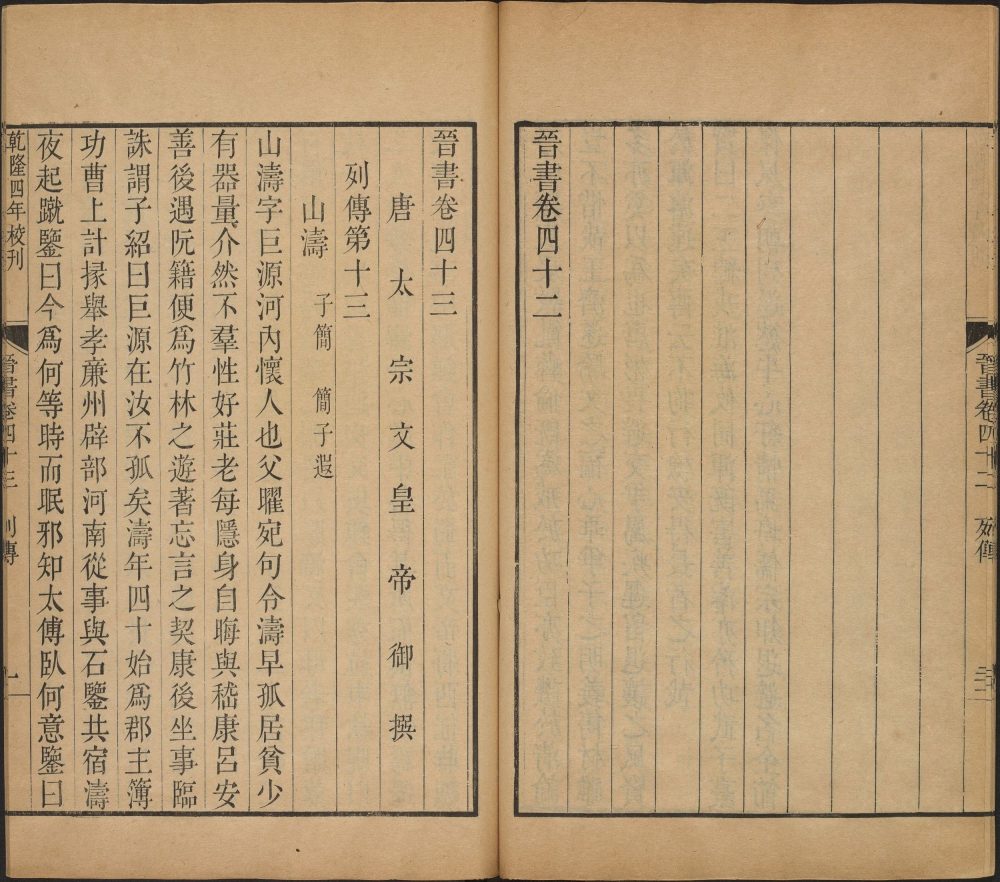 晉書卷四十二
列傳
晉書卷四十二
晉書卷四十三
唐太宗文皇帝御撰
列傳第十三
山濤 子簡 簡子遐
山濤字巨源河內懷人也父曜宛句令濤早孤居貧少
有器量介然不羣性好莊老每隱身自晦與嵇康呂安
善後遇阮籍便爲竹林之遊著忘言之契康後坐事臨
誅謂子紹曰巨源在汝不孤矣濤年四十始爲郡主簿
功曹上計掾舉孝廉州辟部河南從事與石鑒共宿濤
夜起蹴鑒曰今爲何等時而眠邪知太傅臥何意鑒曰
乾隆四年校刊
晉書卷四十三
列傳